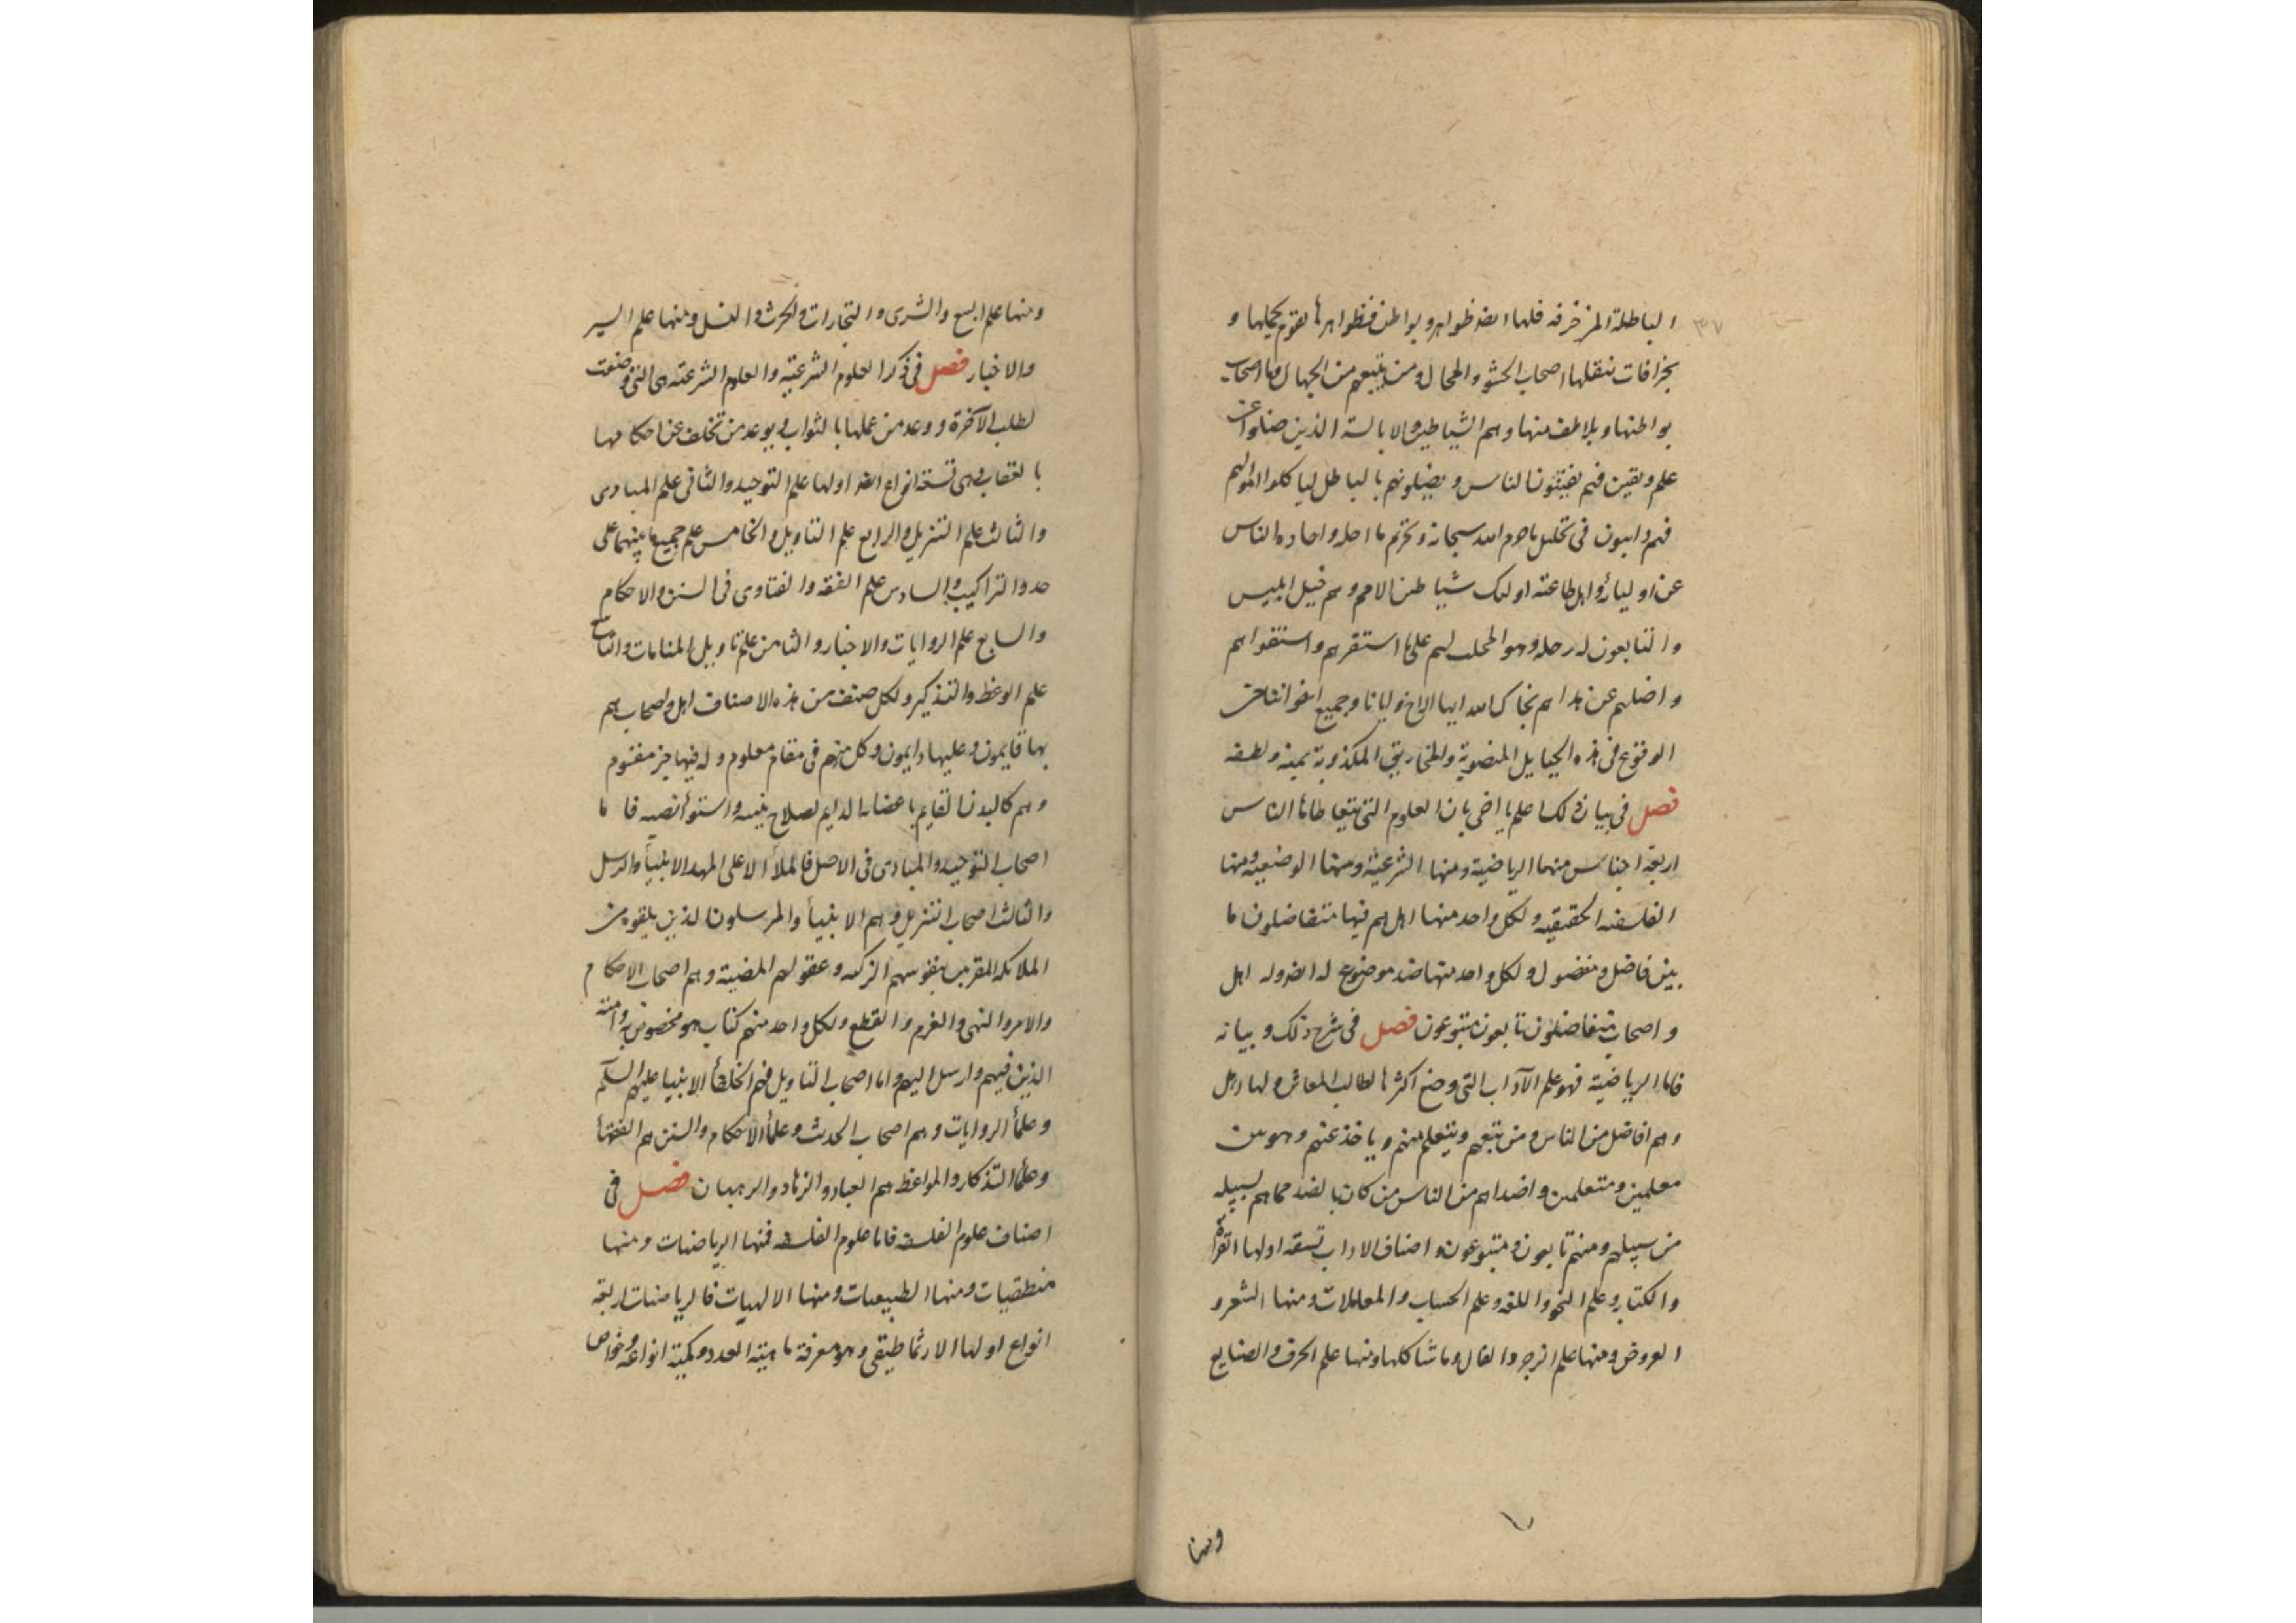 ٣٧
الباطلة المزخرفة فلها ايضا ظواهر وبواطن فظواهرها لقوم بجهلها و
بخرافات ينقلها اصحاب الحشو والمحال ومن يتبعهم من الجهال واما اصحاب
بواطنها وبلاطف منها وهم الشياطين والابالسة الذين ضلوا عن
علم ويقين فهم يفتنون الناس ويضلونهم بالباطل لياكلوا اموالهم
فهم دايبون فى تحليل ما حرم الله سبحانه وتحريم ما احله واحادة الناس
عن اوليائه واهل طاعته اولئك شياطين الامم وهم خيل ابليس
والتابعون له رجله وهو المجلب لهم على ما استقرهم واستغواهم
واضلهم عن هداهم نجاك الله ايها الاخ وايانا وجميع اخواننا من
الوقوع فى هذه الحبايل المنصوبة والمخاريق المكذوبة بمنه ولطفه
فصل فى بيان ذلك اعلم يا اخى بان العلوم التى يتعاطاها الناس
اربعة اجناس منها الرياضية ومنها الشرعية ومنها الوضعية ومنها
الفلسفة الحقيقية ولكل واحد منها اهل هم فيها متفاضلون ما
بين فاضل ومفضول ولكل واحد منها ضد موضوع له ايضا وله اهل
واصحاب متفاضلون تابعون متبوعون فصل فى شرح ذلك وبيانه
فاما الرياضية فهو علم الآداب التى وضع اكثرها لطالب المعاش ولها اهل
وهم افاضل من الناس ومن يتبعهم ويتعلم منهم وياخذ عنهم وهو من
معلمين ومتعلمين واضداهم من الناس من كان بالضد مما هم بسبيله
من سبيلهم ومنهم تابعون ومتبوعون واصناف الاداب تسعة اولها القراة
والكتابة وعلم النحو واللغه وعلم الحساب والمعاملات ومنها الشعر و
العروض ومنها علم الزجر والفال وما شاكلها ومنها علم الحرف والصنايع
ومنها
ومنها علم البيع والشرى والتجارات والحرث والنسل ومنها علم السير
والاخبار فصل فى ذكر العلوم الشرعية والعلوم الشرعية هى التى وضعت
لطلب الآخرة ووعد من عملها بالثواب ويوعد من تخلف عن احكامها
بالعقاب وهى تسعة انواع ايضا اولها علم التوحيد والثانى علم المبادى
والثالث علم التنزيل والرابع علم التاويل والخامس علم جميع ما بينهما على
حدو التراكيب والسادس علم الفقه والفتاوى فى السنن والاحكام
والسابع علم الروايات والاخبار والثامن علم تاويل المنامات والتاسع
علم الوعظ والتذكير ولكل صنف من هذه الاصناف اهل واصحاب هم
بها قايمون وعليها دايمون وكل منهم فى مقام معلوم وله فيها جزء مقسوم
وهم كالبدن القايم باعضائه الدايم لصلاح بنيته واستواء نصبه فاما
اصحاب التوحيد والمبادى فى الاصل فالملأ الاعلى المهد الانبيأ والرسل
والثالث اصحاب التنزيل وهم الانبيأ والمرسلون الذين يلقوه من
الملائكة المقربين بنفوسهم الزكية وعقولهم المضية وهم اصحاب الاحكام
والامر والنهى والعزم والقطع ولكل واحد منهم كتاب هو مخصوص به وامته
الذين فيهم وارسل اليهم واما اصحاب التاويل فهم الخلفأ الانبيا عليهم السلم
وعلمأ الروايات وهم اصحاب الحديث وعلمأ الاحكام والسنن هم الفقهأ
وعلمأ التذكار والمواعظ هم العباد والزهاد والرهبان فصل فى
اصناف علوم الفلسفة فاما علوم الفلسفة فمنها الرياضيات ومنها
منطقيات ومنها الطبيعيات ومنها الالهيات فالرياضيات اربعة
انواع اولها الارثماطيقى وهو معرفة ماهية العدد وكمية انواعه وخواص